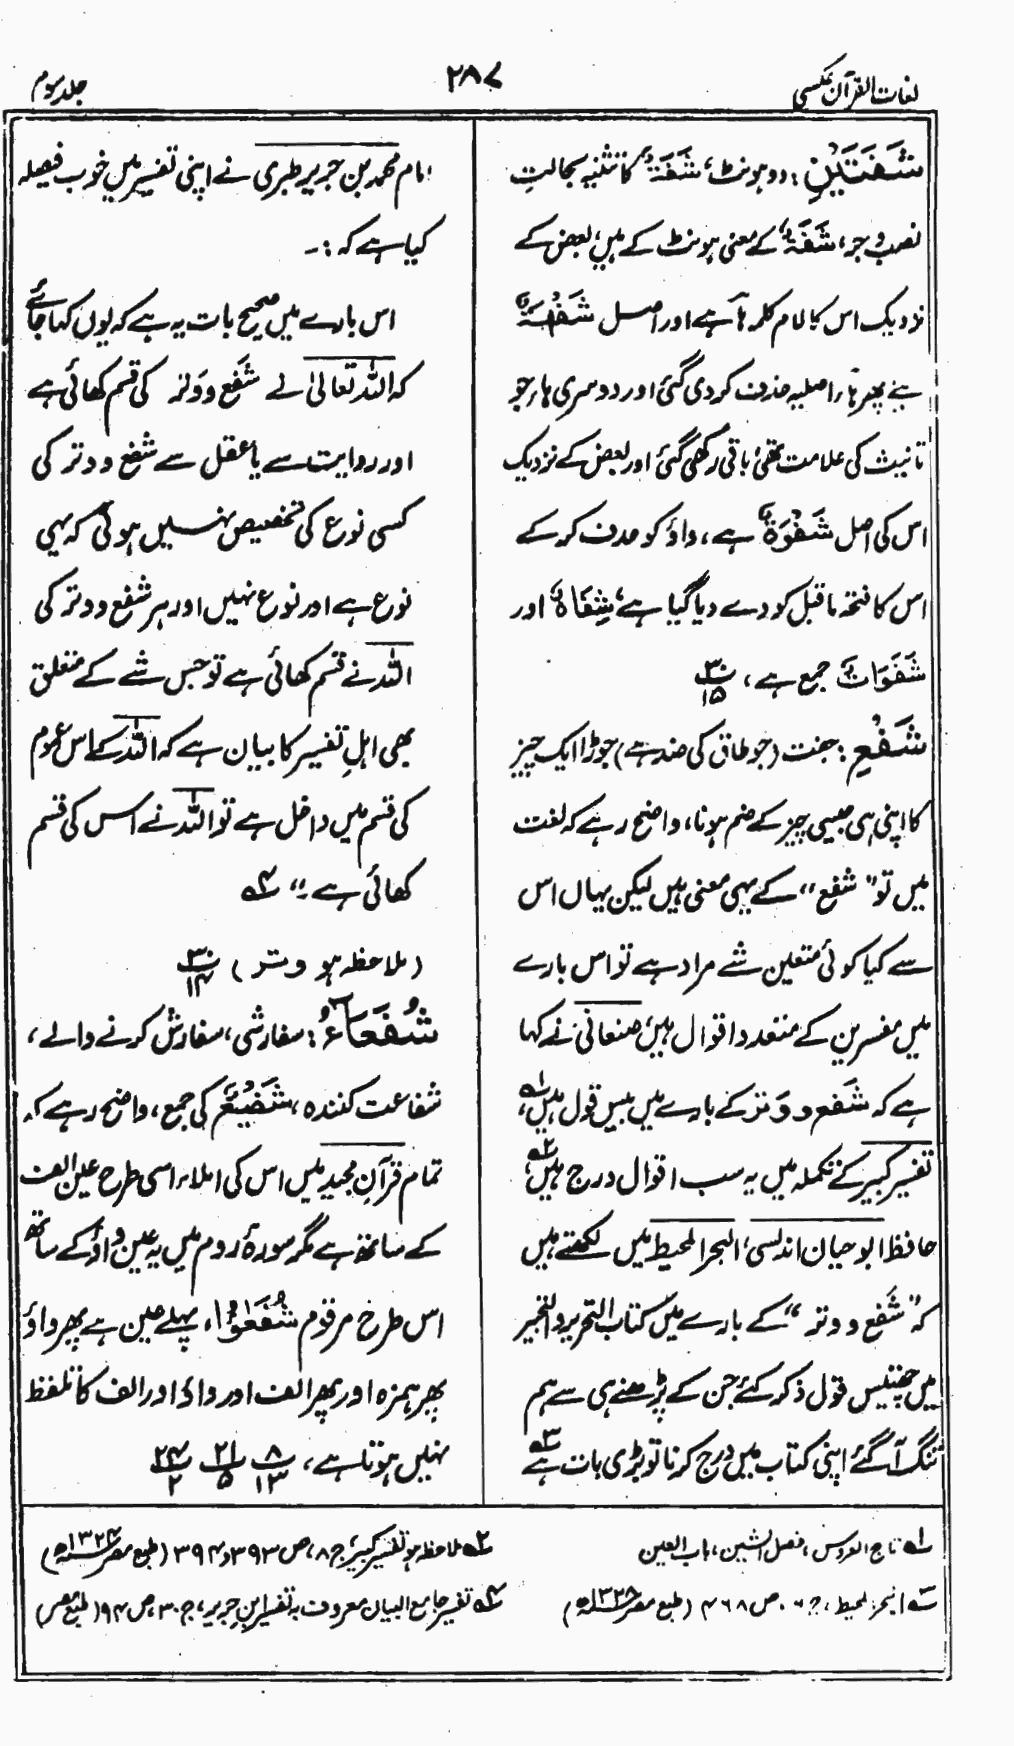 لغات القرآن عکسی
۲۸۷
جلد سوم
شَفَتَيْنِ: دو ہونٹ، شَفَةٌ کا تثنیہ بحالتِ
نصب و جر، شَفَةٌ کے معنی ہونٹ کے ہیں، بعض کے
نزدیک اس کا لام کلمہ ہآ ہے اور اصل شَفْهَةٌ
ہے پھر ہاء اصلیہ حذف کر دی گئی اور دوسری ہاء جو
تانیث کی علامت تھی باقی رکھی گئی اور بعض کے نزدیک
اس کی اصل شَفْوَةٌ ہے، واؤ کو حذف کر کے
اس کا فتحہ ماقبل کو دے دیا گیا ہے، شِفَاهٌ اور
شَفَوَاتٌ جمع ہے، ۳۰/۱۵
شَفْعٍ: جفت (جو طاق کی ضد ہے) جوڑا ایک چیز
کا اپنی ہی جیسی چیز کے ضم ہونا، واضح رہے کہ لغت
میں تو "شفع" کے یہی معنی ہیں لیکن یہاں اس
سے کیا کوئی متعین شے مراد ہے تو اس بارے
میں مفسرین کے متعدد اقوال ہیں، صنعانی نے کہا
ہے کہ شَفع و وَتر کے بارے میں بیس قول ہیں، ۱ے
تفسیر کبیر کے تکملہ میں یہ سب اقوال درج ہیں ۲ے
حافظ ابو حیان اندلسی، البحر المحیط میں لکھتے ہیں
کہ "شَفع و وتر" کے بارے میں کتاب التحریر والتحبیر
میں چھتیس قول ذکر کئے جن کے پڑھنے ہی سے ہم
تنگ آ گئے اپنی کتاب میں درج کرنا تو بڑی بات ہے ۳ے
امام محمد بن جریر طبری نے اپنی تفسیر میں خوب فیصلہ
کیا ہے کہ :۔
اس بارے میں صحیح بات یہ ہے کہ یوں کہا جائے
کہ اللہ تعالیٰ نے شَفع و وَتر کی قسم کھائی ہے
اور روایت سے یا عقل سے شفع و وتر کی
کسی نوع کی تخصیص نہیں ہوئی کہ یہی
نوع ہے اور نوع نہیں اور ہر شفع و وتر کی
اللہ نے قسم کھائی ہے تو جس شے کے متعلق
بھی اہلِ تفسیر کا بیان ہے کہ اللہ کے اس عموم
کی قسم میں داخل ہے تو اللہ نے اس کی قسم
کھائی ہے ۔" ۴ے
(ملاحظہ ہو وتر) ۳۰/۱۴
شُفَعَآءُ: سفارشی، سفارش کرنے والے،
شفاعت کنندہ، شَفِيْعٌ کی جمع، واضح رہے کہ
تمام قرآنِ مجید میں اس کی املاء اسی طرح عین الف
کے ساتھ ہے مگر سورۂ روم میں یہ عین و واؤ کے ساتھ
اس طرح مرقوم شُفَعٰٓؤُا، پہلے عین ہے پھر واؤ
پھر ہمزہ اور پھر الف اور واؤ اور الف کا تلفظ
نہیں ہوتا ہے، ۸/۱۳ ۲۱/۵ ۲۴/۲
۱ے تاج العروس، فصل الشین، باب العین
۲ے ملاحظہ ہو تفسیر کبیر، ج ۸، ص ۳۹۳ و ۳۹۴ (طبع مصر ۱۳۲۴ھ)
۳ے البحر المحیط، ج ۶، ص ۴۶۸ (طبع مصر ۱۳۲۸ھ)
۴ے تفسیر جامع البیان معروف بہ تفسیر ابن جریر، ج ۳۰، ص ۹۴ (طبع مصر)